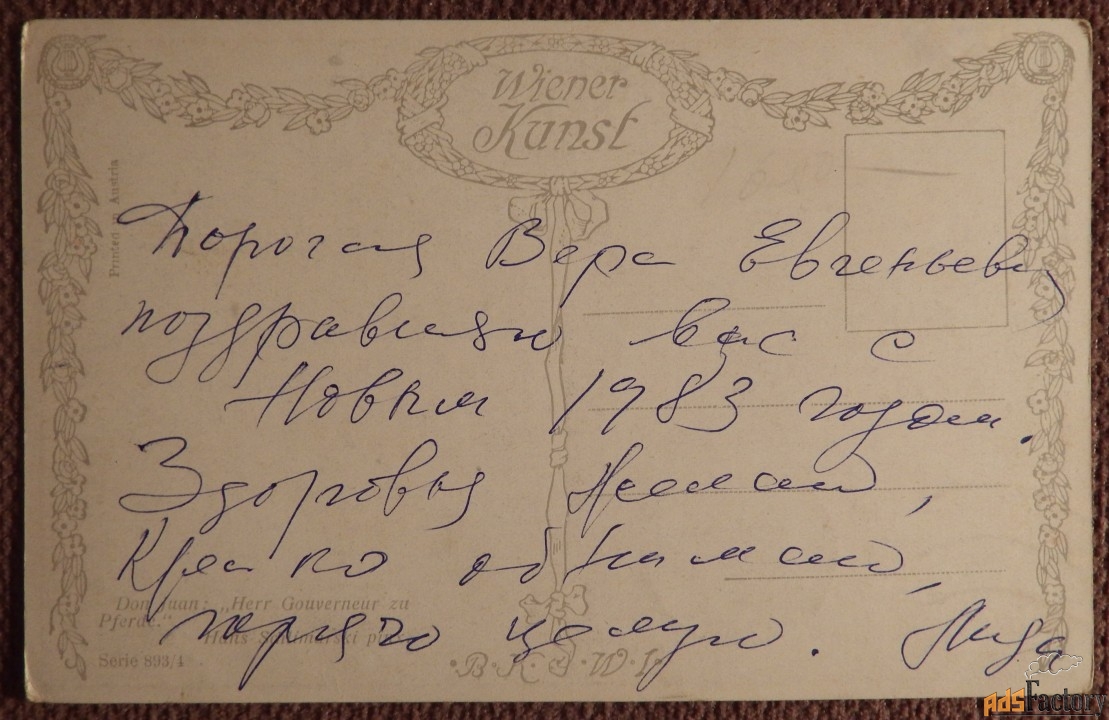 Wiener
Kunst
Printed in Austria
Дорогая Вера Евгеньевна
поздравляю вас с
Новым 1983 годом.
Здоровья желаю,
Крепко обнимаю,
горячо целую. Лида
Don Juan: „Herr Gouverneur zu
Pferde."
Hans
Serie 893/1
B.K.W.I.
AdsFactory